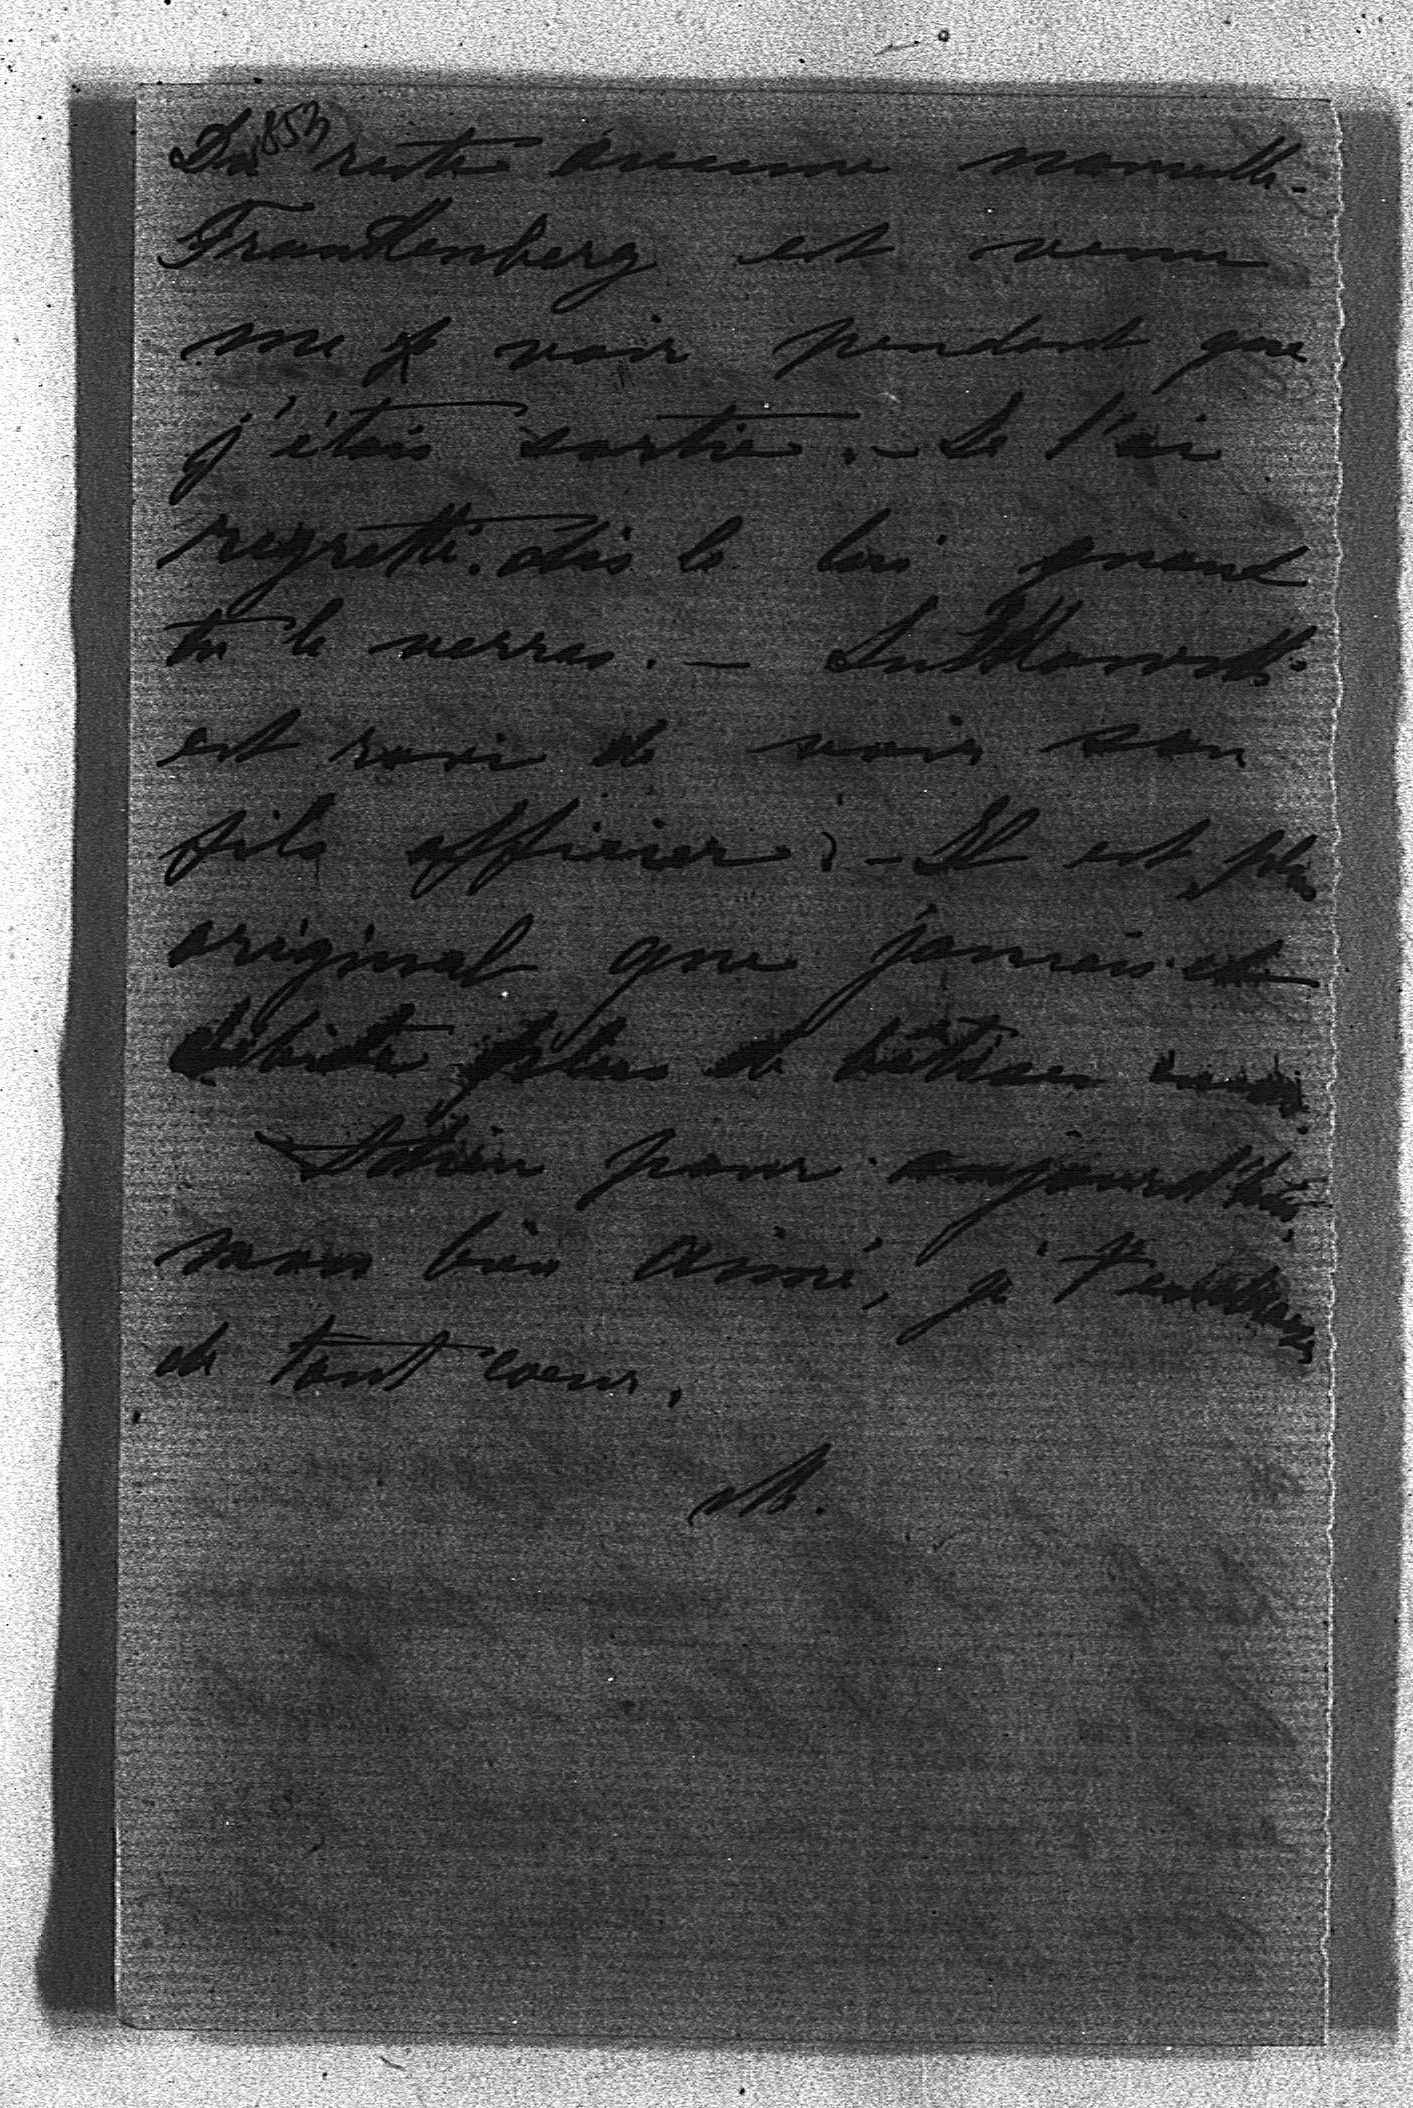 853
Du reste aucune nouvelle.
Trauttenberg est venu
me voir pendant que
j'étais sortie. – Je l'ai
regretté. dis le lui quand
tu le verras. –
est ravi de voir son
fils officier. – Il est plus
original que jamais et
débite plus de bêtises encore.
Adieu pour aujourd'hui
mon bien aimé, je t'embrasse
de tout coeur.
M.